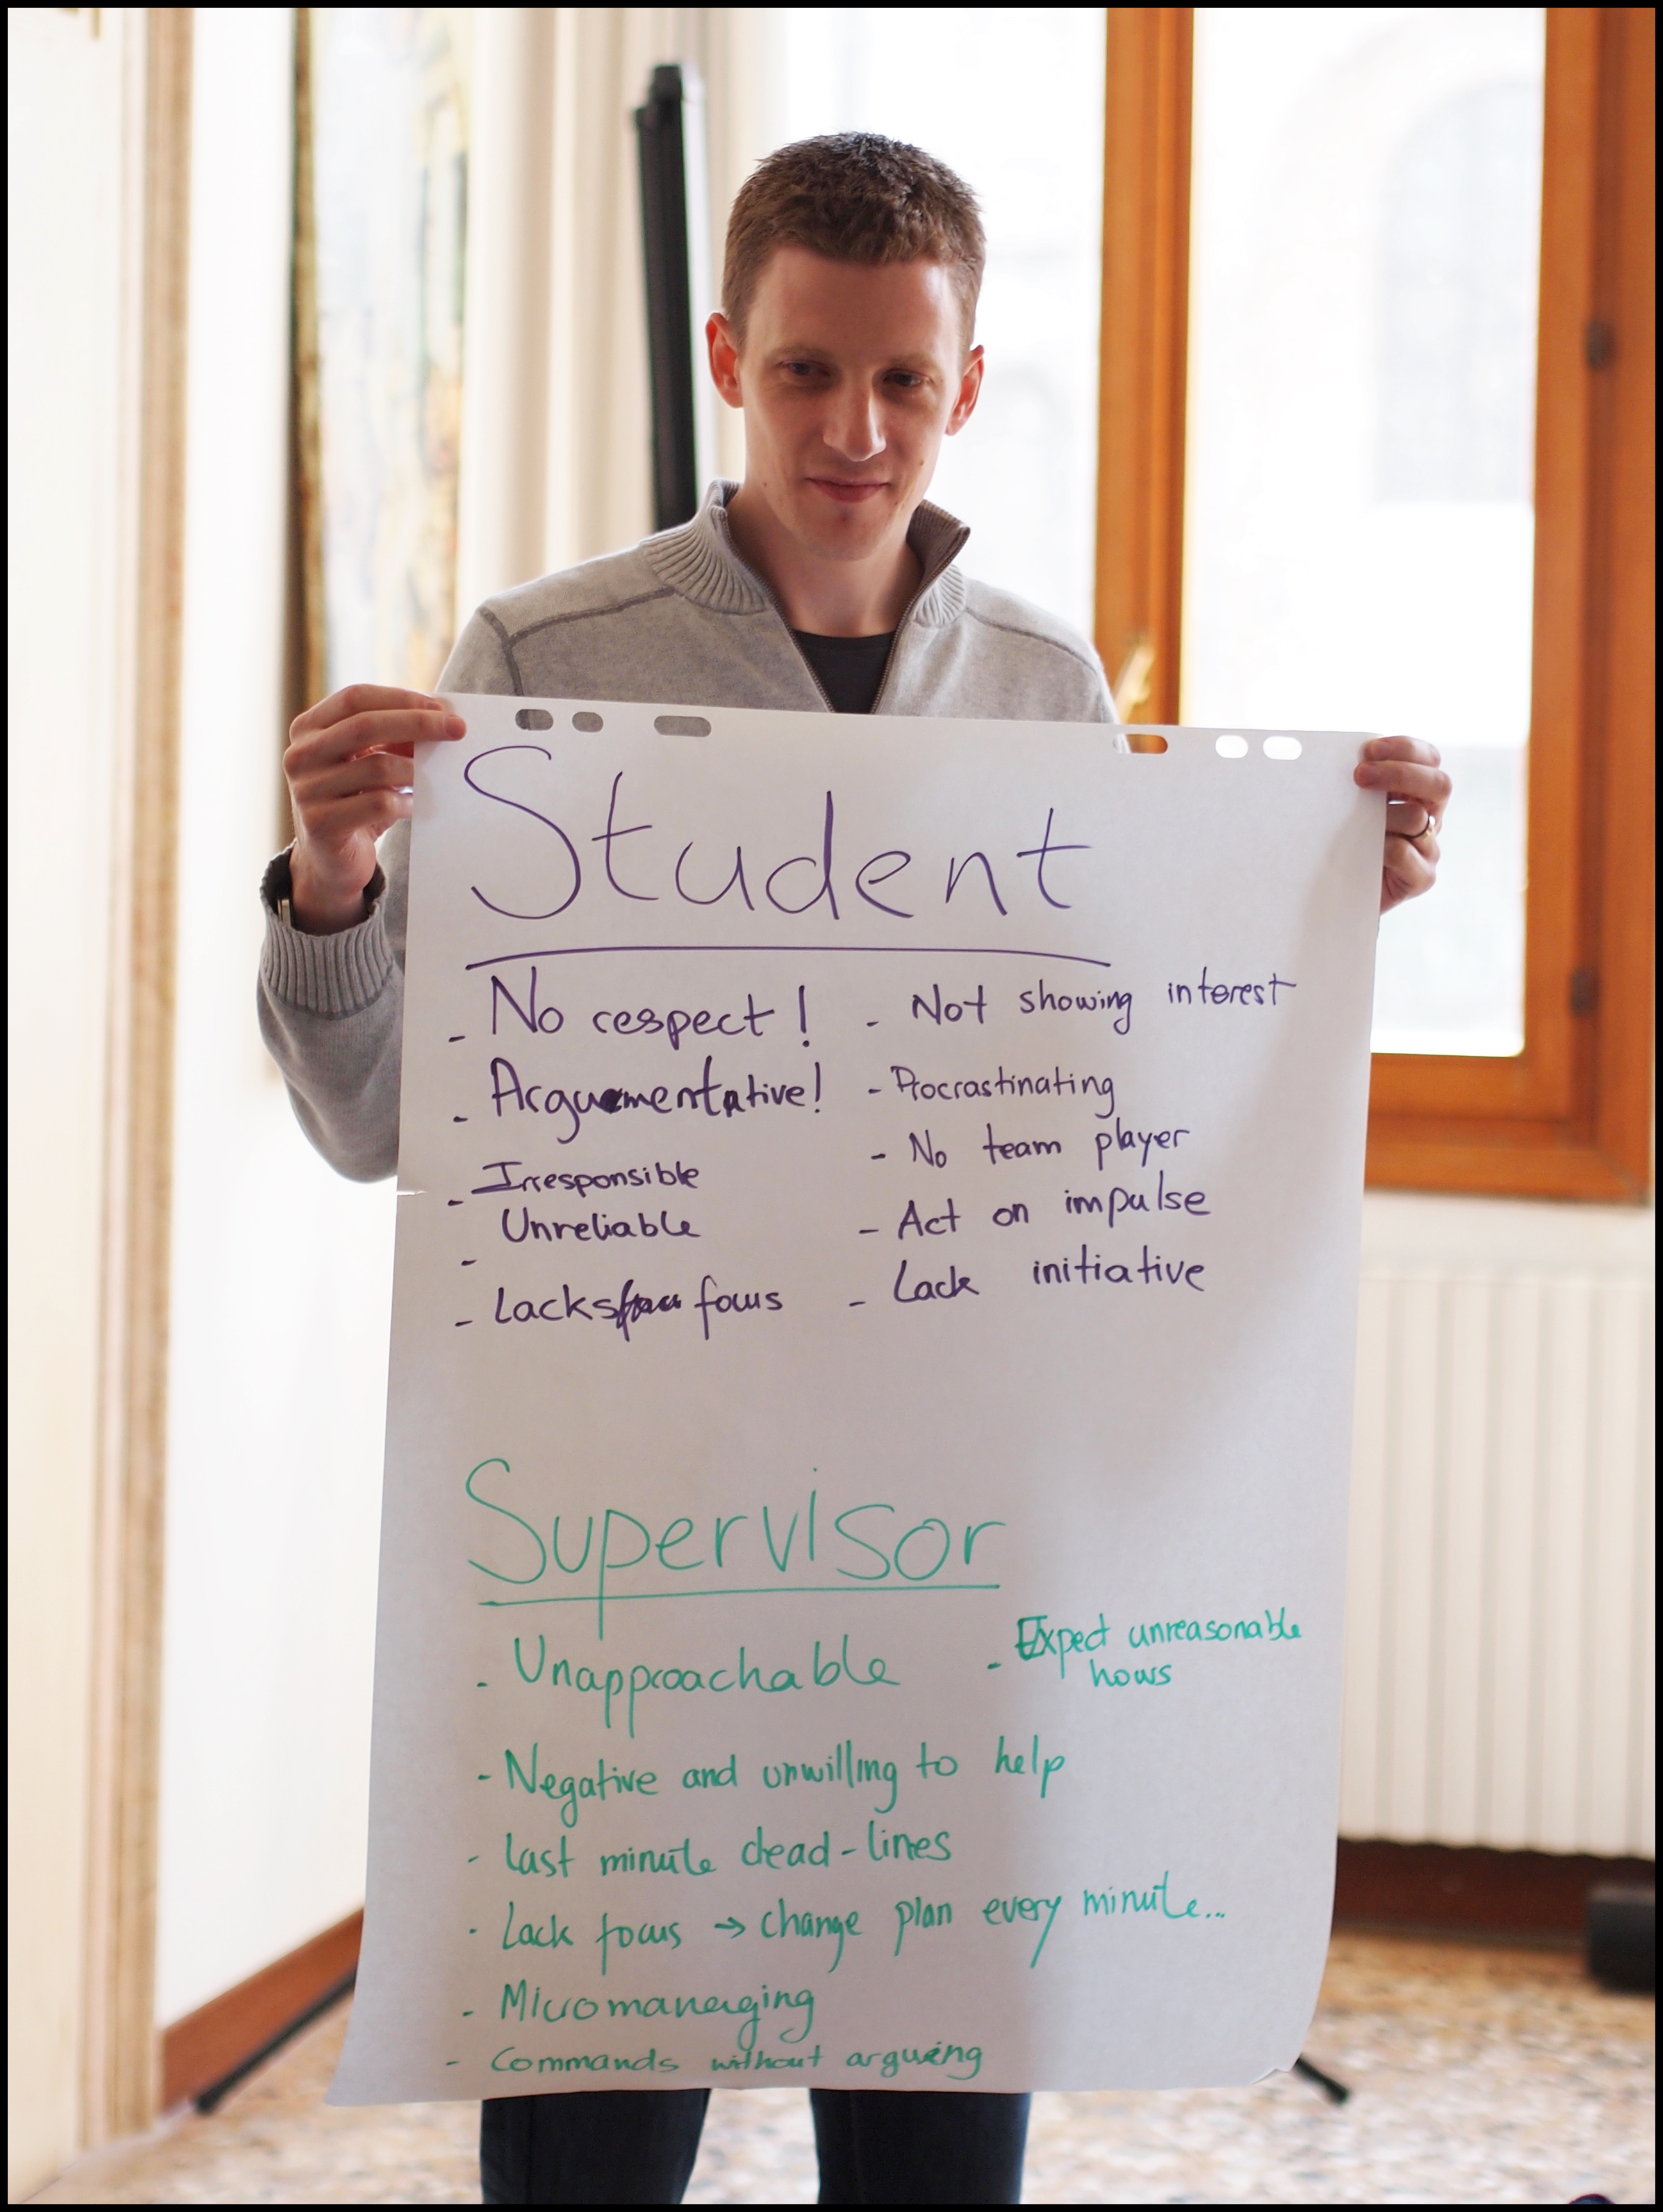 Student
- No respect!
- Argumentative!
- Irresponsible
- Unreliable
- Lacks focus
- Not showing interest
- Procrastinating
- No team player
- Act on impulse
- Lack initiative
Supervisor
- Unapproachable
- Expect unreasonable
hours
- Negative and unwilling to help
- last minute dead-lines
- Lack focus → change plan every minute...
- Micromanaging
- Commands without arguing